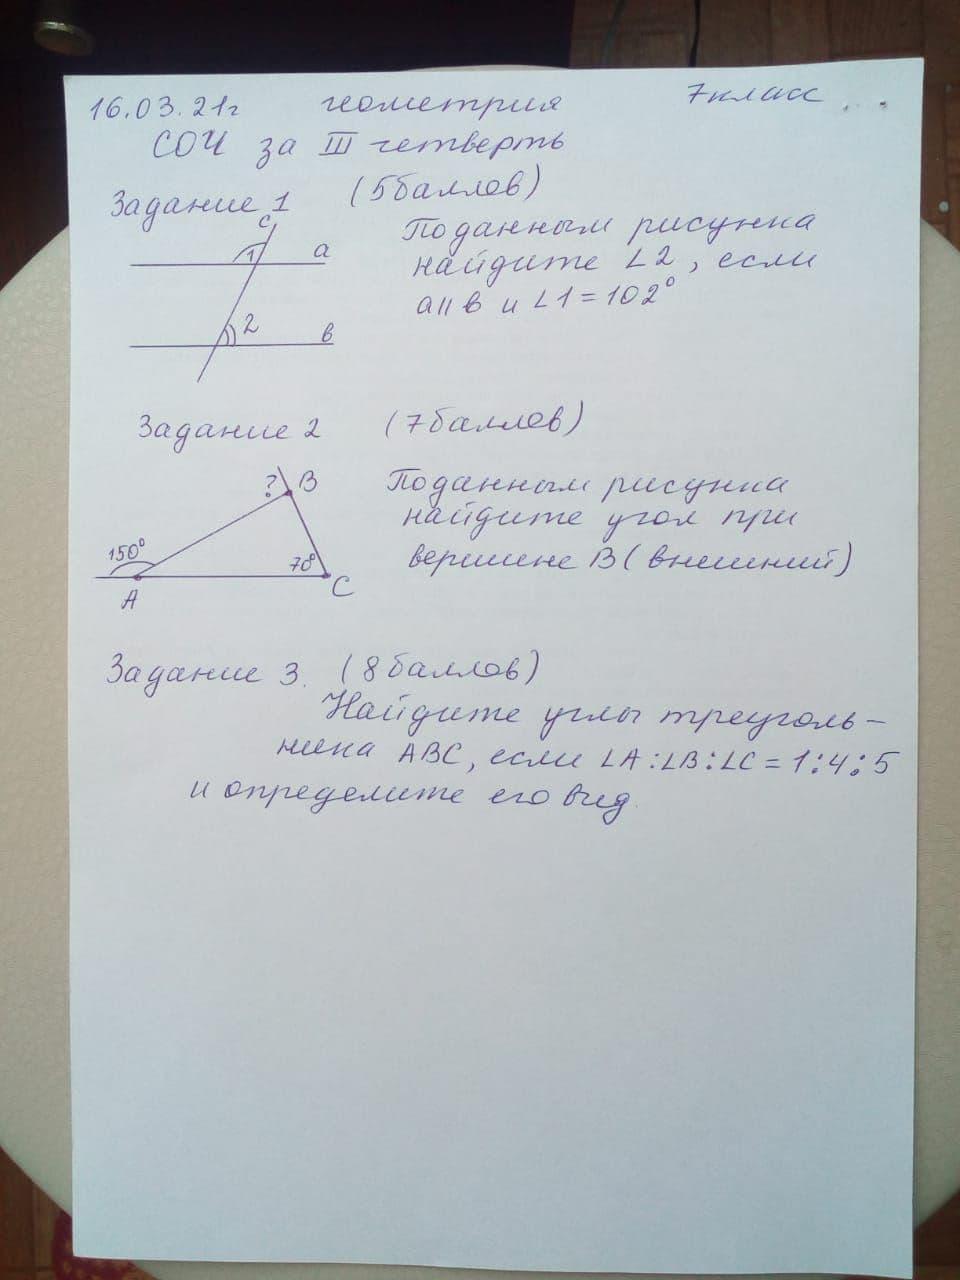 16.03.21г геометрия 7класс
СОЧ за III четверть
Задание 1 (5баллов)
c
1 a
2
в
По данным рисунка
найдите ∠2, если
a॥в и ∠1=102°
Задание 2 (7баллов)
? B
150°
78°
A
C
По данным рисунка
найдите угол при
вершине В(внешний)
Задание 3. (8баллов)
Найдите углы треуголь-
ника АВС, если ∠А:∠В:∠С=1:4:5
и определите его вид.